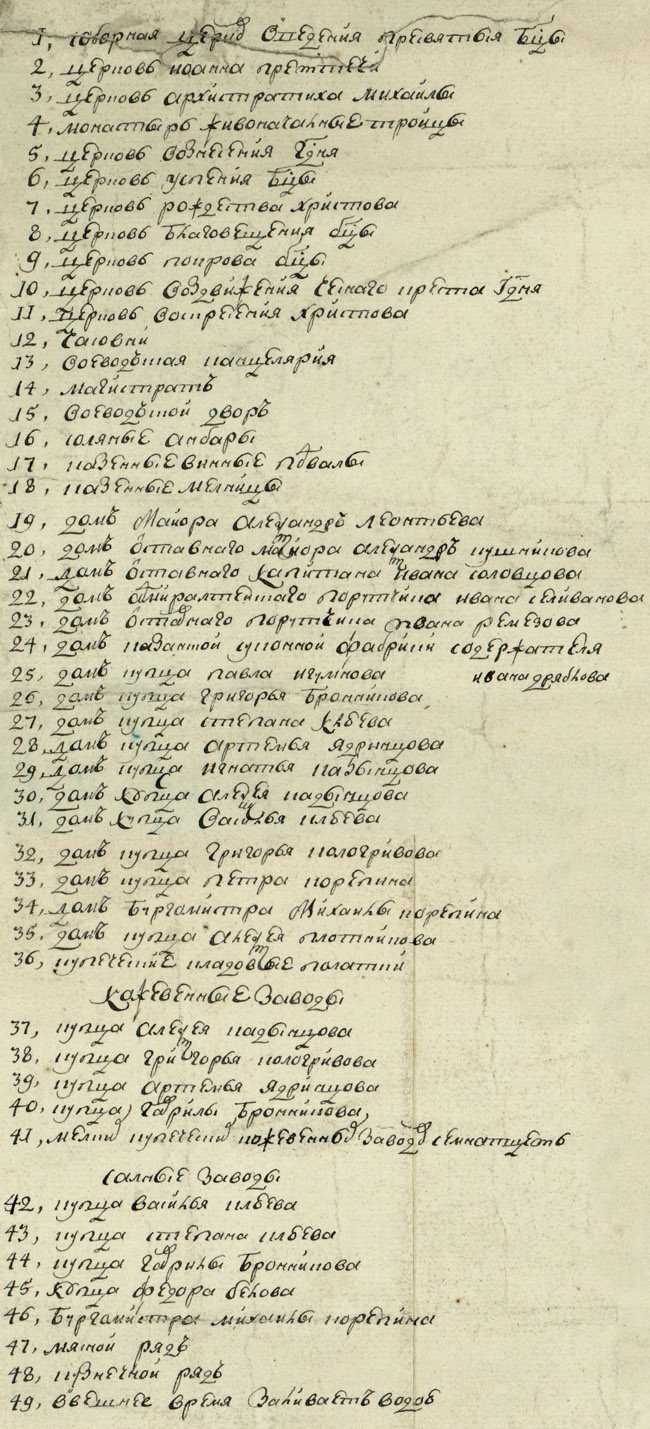 1, соборная церковь Введения пресвятыя Бцы
2, церковь иоанна претечи
3, церковь архистратиха михаилы
4, монастырь живоначалные тройцы
5, церковь вознесения Гдня
6, церковь успения Бцы
7, церковь рождества христова
8, церковь благовещения бцы
9, церковь покрова бцы
10, церковь воздвижения честнаго креста Гдня
11, церковь воскресения христова
12, часовни
13, воеводцкая канцелярия
14, магистратъ
15, воеводцкой дворъ
16, соляные анбары
17, казенные винные подвалы
18, казенные мелницы
19, домъ маиора александръ леонтьева
20, домъ отставнаго маиора александръ пушникова
21, домъ отставнаго капитана ивана соловцова
22, домъ адмиралтейского порутчика ивана селиванова
23, домъ отставнаго порутчика ивана ремезова
24, домъ казанской суконной фабрики содержателя
ивана дряблова
25, домъ купца павла игумнова
26, домъ купца григорья Бронникова
27, домъ купца степана
28, домъ купца артемья ядринцова
29, домъ купца игнатья кадыпцова
30, домъ купца алексея кадыпцова
31, домъ купца василья ильева
32, домъ купца григорья кологривова
33, домъ купца петра корепина
34, домъ Бургамистра михаилы корепина
35, домъ купца алексея плотникова
36, купеческие кладовые полатки
кажевенные заводы
37, купца алексея кадыпцова
38, купца григорья кологривова
39, купца артемья ядринцова
40, купца гаврилы Бронникова,
41, мелких купеческих кожевенных заводов семнатцеть
салные заводы
42, купца василья ильева
43, купца степана ильева
44, купца гаврилы Бронникова
45, купца федора белова
46, Бургамистра михаилы корепина
47, мясной рядъ
48, кузнечной рядъ
49, ввешнее время заливаетъ водоб